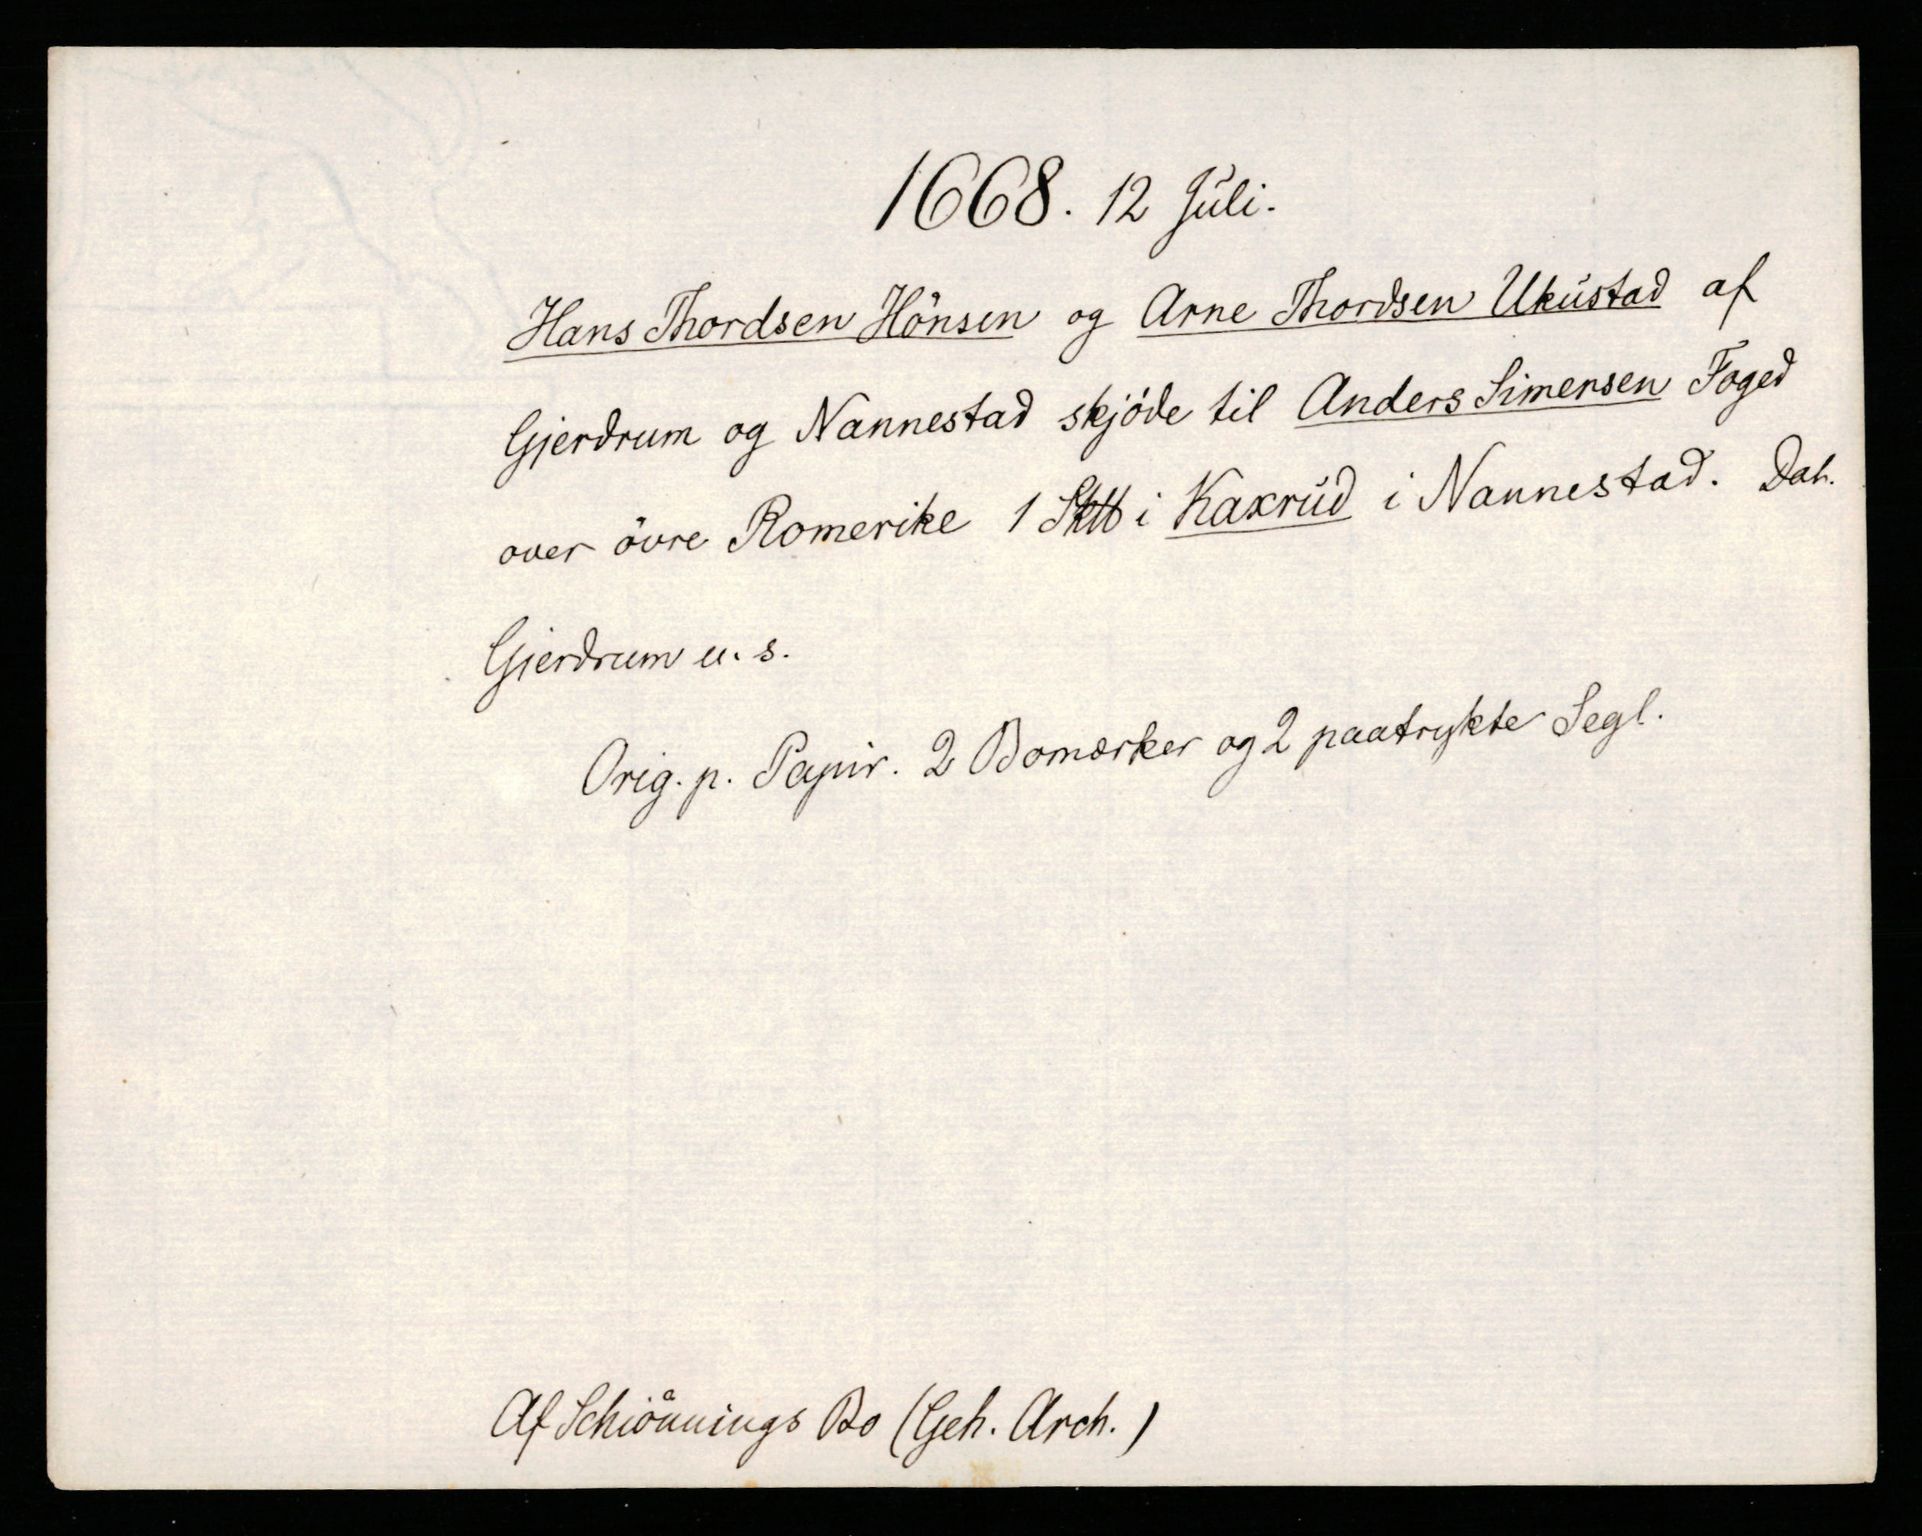 1668. 12 Juli.
Hans Thordsen Hönsen og Arne Thordsen Ukustad af
Gjerdrum og Nannestad skjöde til Anders Simensen Foged
over övre Romerike 1 Sk℔ i Kaxrud i Nannestad. Dat.
Gjerdrum u. s.
Orig. p. Papir. 2 Bomærker og 2 paatrykte Segl.
Af Schiönnings Bo (Geh. Arch.)